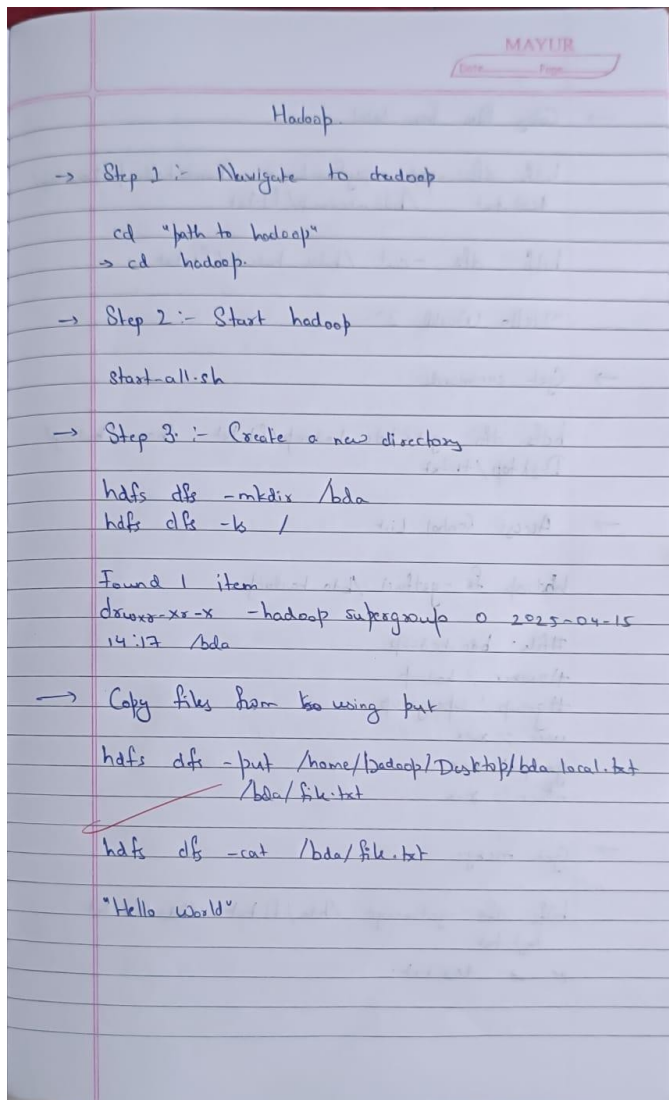 MAYUR
Date Page
Hadoop.
→ Step 1 :- Navigate to hadoop
cd "path to hadoop"
→ cd hadoop.
→ Step 2 :- Start hadoop
start-all.sh
→ Step 3. :- Create a new directory
hdfs dfs -mkdir /bda
hdfs dfs -ls /
Found 1 item
drwxr-xr-x -hadoop supergroup 0 2025-04-15
14:17 /bda
→ Copy files from using put
hdfs dfs -put /home/hadoop/Desktop/bda local.txt
/bda/file.txt
hdfs dfs -cat /bda/file.txt
"Hello world"